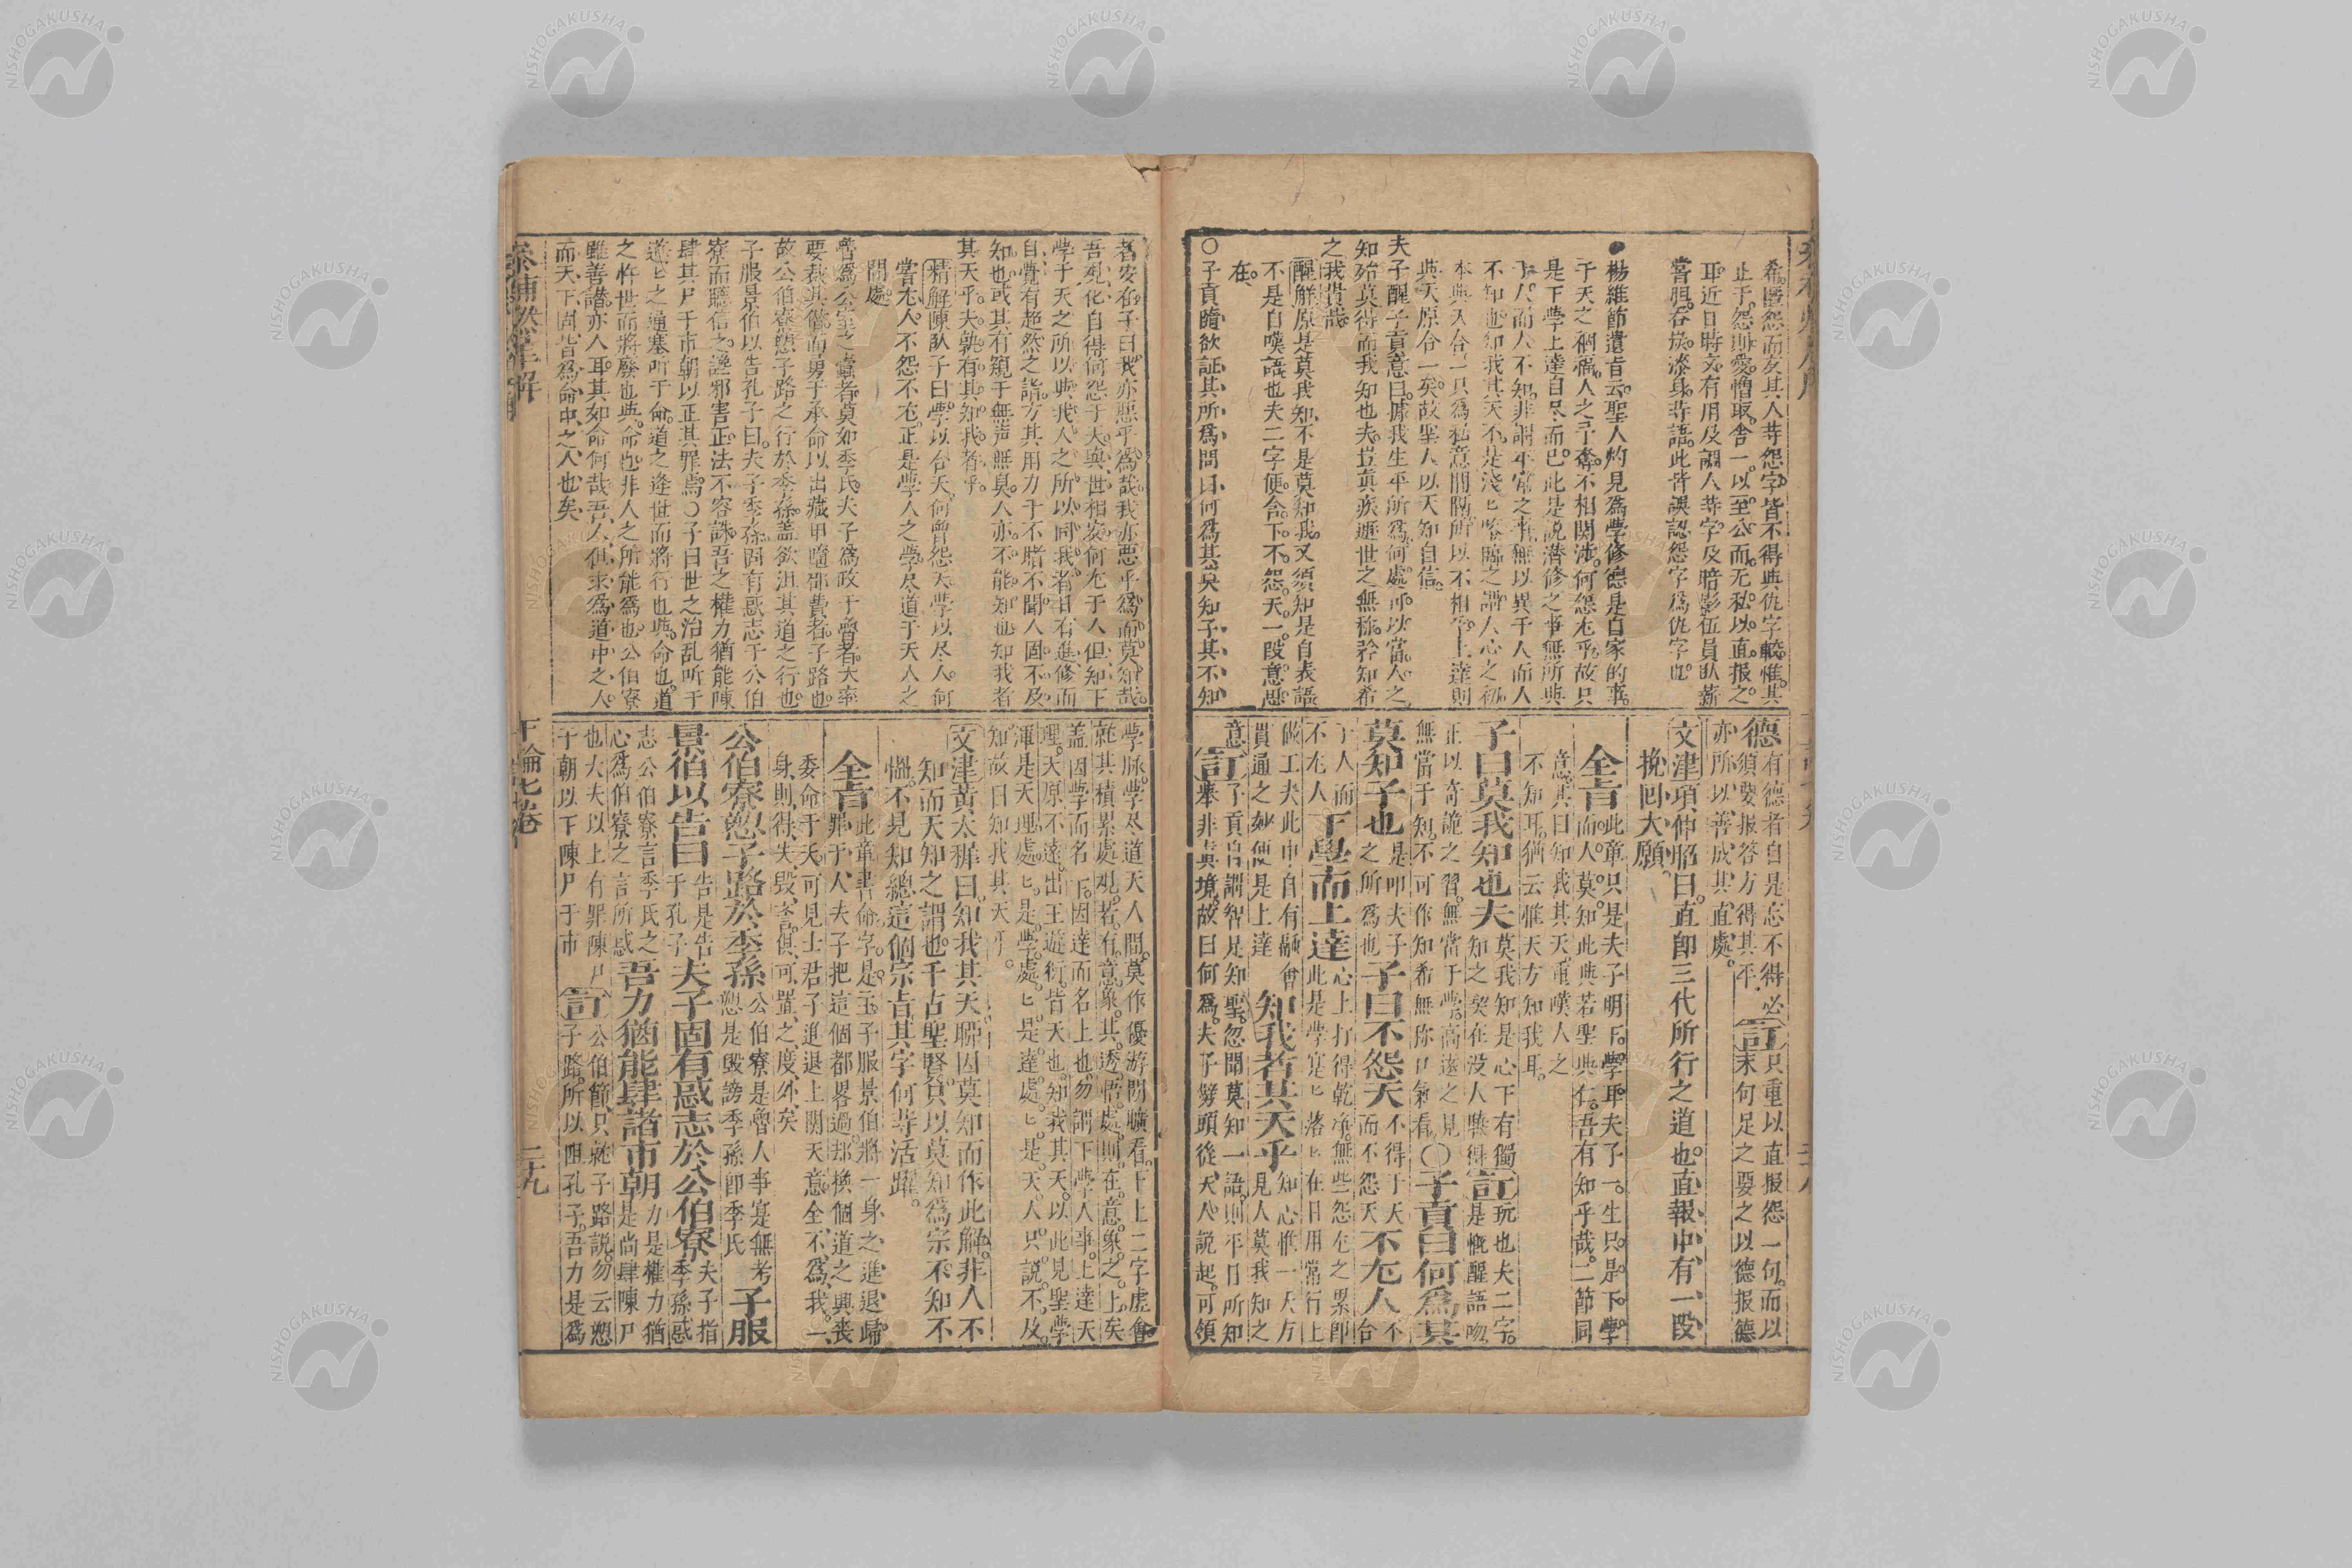 希匿怨而友其人等怨字皆不得與仇字較惟其
止于怨則愛憎取舍一以至公而无私以直报之
耳近日時文有用及調人等字及暗影伍員臥薪
嘗胆吞炭漆身等語此皆誤認怨字爲仇字也
●楊維節遺旨云聖人灼見爲學修德是自家的事
于天之禍福人之予奪不相関涉何怨尤乎故只
是下學上達自尽而已此是説潜修之事無所異
于人而人不知非謂平常之事無以異于人而人
不知也知我其天不是淺匕監臨之謂人心之初
本與天合一只爲私意間隔所以不相合上達則
與天原合一矣故聖人以天知自信
夫子醒子貢意曰據我生平所爲何處可以當人之
知殆莫得而我知也夫豈真疾遯世之無称矜知希
之我貴哉
醒解原是莫我知不是莫知我又須知是自表語
不是自嘆語也夫二字便含下不怨天一段意思
在
○子貢隨欲証其所爲問曰何爲其莫知子其不知
德有德者自是忘不得必
須要报答方得其平
訂只重以直报怨一句而以
末句足之要之以德报德
亦所以善成其直處
文津項仲昭曰直卽三代所行之道也直報中有一段
挽回大願
全旨此章只是夫子明下學耳夫子一生只是下學
而人莫知此與若聖與仁吾有知乎哉二節同
意其曰知我其天重嘆人之
不知耳猶云惟天方知我耳
子曰莫我知也夫莫我知是心下有獨
知之契在没人曉得
訂玩也夫二字
是慨醒語吻
正以奇詭之習無當于學高遠之見
無當于知不可作知希無称口氣看
○子貢曰何爲其
莫知子也是叩夫子
之所爲也
子曰不怨天不得于天
而不怨天
不尤人不合
于人而
不尤人
下學而上達心上打得乾净無些怨尤之累卽
此是學寔匕落匕在日用常行上
做工夫此中自有融會
貫通之妙便是上達
知我者其天乎知心惟一天方
見人莫我知之
意訂子貢自謂智足知聖忽聞莫知一語則平日所知
舉非真境故曰何爲夫子劈頭從天人説起可領
者安在子曰我亦惡乎爲哉我亦惡乎爲而莫知哉
吾観化自得何怨于天與世相安何尤于人但知下
學于天之所以與我人之所以同我者日有進修而
自覺有超然之詣方其用力于不睹不聞人固不及
知也或其有窺于無声無臭人亦不能知也知我者
其天乎夫孰有其知我者乎
精解陳臥子曰學以合天何曾怨天學以尽人何
嘗尤人不怨不尤正是學人之學尽道于天人之
間處
魯爲公室之蠹者莫如季氏夫子爲政于魯者大率
要裁其僭而勇于承命以出藏甲墮郈費者子路也
故公伯寮愬子路之行於季孫蓋欲沮其道之行也
子服景伯以告孔子曰夫子季孫固有惑志于公伯
寮而聽信之讒邪害正法不容誅吾之權力猶能陳
肆其尸于市朝以正其罪焉○子曰世之治乱听于
道匕之通塞听于命道之逢世而將行也與命也道
之忤世而將廢也與命也非人之所能爲也公伯寮
雖善譖亦人耳其如命何哉吾人俱求爲道中之人
而天下固皆爲命中之人也矣
學脉學尽道天人間莫作優游閒曠看下上二字虚會
就其積累處観若有意象其透悟處則在意象之上矣
蓋因學而名下因達而名上也勿謂下學人事上達天
理天原不遠出王遊衍皆天也知我其天以此見聖學
渾是天理處匕是學處匕是達處匕是天人只説不及
知故曰知我其天乎
文津黄太穉曰知我其天聯因莫知而作此解非人不
知而天知之謂也千古聖賢只以莫知爲宗不知不
慍不見知總這個宗旨其字何等活躍
全旨此章書命字是主子服景伯將一身之進退歸
罪于人夫子把這個都畧過却換個道之興喪
委命于天可見士君子進退上関天意全不爲我一
身則得失毁誉俱可置之度外矣
公伯寮愬子路於季孫公伯寮是魯人事寔無考
愬是毁謗季孫卽季氏
子服
景伯以告曰告是告
于孔子
夫子固有惑志於公伯寮夫子指
季孫惑
志公伯寮言季氏之
心爲伯寮之言所惑
吾力猶能肆諸市朝力是權力猶
是尚肆陳尸
也大夫以上有罪陳尸
于朝以下陳尸于市
訂公伯節只就子路説勿云愬
子路所以阻孔子吾力是爲
下論七卷
二十九